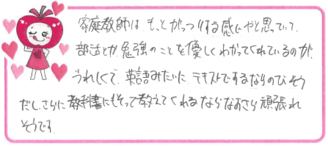 家庭教師は もっとがっつりする感じやと思ってて、
部活とか勉強のことを優しくわかってくれているのが、
うれしくて、単語みたいに テキストでするなら のびそう
だし、さらに教科書にそって教えてくれるならなおさら頑張れ
そうです